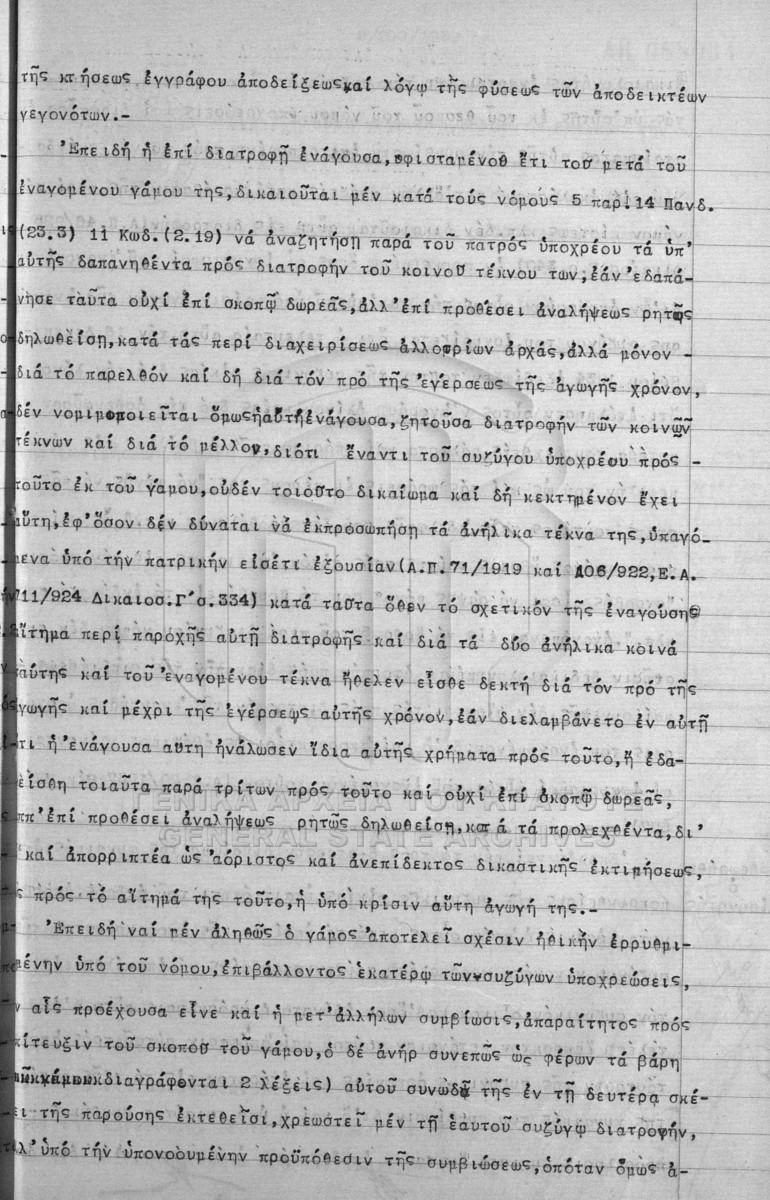 τῆς κτήσεως ἐγγράφου ἀποδείξεως καί λόγῳ τῆς φύσεως τῶν ἀποδεικτέων
γεγονότων.-
Ἐπειδή ἡ ἐπί διατροφῇ ἐνάγουσα, ὑφισταμένου ἔτι τοῦ μετά τοῦ
ἐναγομένου γάμου της, δικαιοῦται μέν κατά τούς νόμους 5 παρ. 14 Πανδ.
(23.3) 11 Κωδ.(2.19) νά ἀναζητήσῃ παρά τοῦ πατρός ὑποχρέου τά ὑπ'
αὐτῆς δαπανηθέντα πρός διατροφήν τοῦ κοινοῦ τέκνου των, ἐάν 'εδαπά-
νησε ταῦτα οὐχί ἐπί σκοπῷ δωρεᾶς, ἀλλ' ἐπί προθέσει ἀναλήψεως ρητῶς
δηλωθείσῃ, κατά τάς περί διαχειρίσεως ἀλλοτρίων ἀρχάς, ἀλλά μόνον -
διά τό παρελθόν καί δή διά τόν πρό τῆς 'εγέρσεως τῆς ἀγωγῆς χρόνον,
δέν νομιμοποιεῖται ὅμως ἡ αὐτή ἐνάγουσα, ζητοῦσα διατροφήν τῶν κοινῶν
τέκνων καί διά τό μέλλον, διότι ἔναντι τοῦ συζύγου ὑποχρέου πρός -
τοῦτο ἐκ τοῦ γάμου, οὐδέν τοιοῦτο δικαίωμα καί δή κεκτημένον ἔχει
αὕτη, ἐφ' ὅσον δέν δύναται νά ἐκπροσωπήσῃ τά ἀνήλικα τέκνα της, ὑπαγό-
μενα ὑπό τήν πατρικήν εἰσέτι ἐξουσίαν (Α.Π.71/1919 καί 106/922, Ε.Α.
711/924 Δικαιοσ.Γ'σ.334) κατά ταῦτα ὅθεν τό σχετικόν τῆς ἐναγούσης
αἴτημα περί παροχῆς αὐτῇ διατροφῆς καί διά τά δύο ἀνήλικα κοινά
ταύτης καί τοῦ 'εναγομένου τέκνα ἤθελεν εἶσθε δεκτή διά τόν πρό τῆς
ἀγωγῆς καί μέχρι τῆς ἐγέρσεως αὐτῆς χρόνον, ἐάν διελαμβάνετο ἐν αὐτῇ
ὅτι ἡ 'ενάγουσα αυτη ἠνάλωσεν ἴδια αὐτῆς χρήματα πρός τοῦτο, ἤ ἐδα-
νείσθη τοιαῦτα παρά τρίτων πρός τοῦτο καί οὐχί ἐπί σκοπῷ δωρεᾶς,
ἐπί προθέσει ἀναλήψεως ρητῶς δηλωθείσῃ, κατά τά προλεχθέντα, δι'
καί ἀπορριπτέα ὡς 'αόριστος καί ἀνεπίδεκτος δικαστικῆς ἐκτιμήσεως,
πρός τό αἴτημά της τοῦτο, ἡ ὑπό κρίσιν αὕτη ἀγωγή της.-
Ἐπειδή ναί μέν ἀληθῶς ὁ γάμος 'αποτελεῖ σχέσιν ἠθικήν ἐρρυθμι-
μένην ὑπό τοῦ νόμου, ἐπιβάλλοντος ἑκατέρῳ τῶν συζύγων ὑποχρεώσεις,
ἐν αἷς προέχουσα εἶνε καί ἡ μετ' ἀλλήλων συμβίωσις, ἀπαραίτητος πρός
ἐπίτευξιν τοῦ σκοποῦ τοῦ γάμου, ὁ δέ ἀνήρ συνεπῶς ὡς φέρων τά βάρη
διαγράφονται 2 λέξεις) αὐτοῦ συνῳδᾷ τῆς ἐν τῇ δευτέρᾳ σκέ-
ψει τῆς παρούσης ἐκτεθεῖσι, χρεωστεῖ μέν τῇ ἑαυτοῦ συζύγῳ διατροφήν,
ἀλλ' ὑπό τήν ὑπονοουμένην προϋπόθεσιν τῆς συμβιώσεως, ὁπόταν ὅμως ἀ-
ΓΕΝΙΚΑ ΑΡΧΕΙΑ ΤΟΥ ΚΡΑΤΟΥΣ
GENERAL STATE ARCHIVES